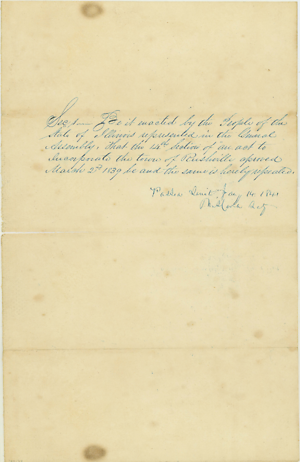 Sec 1 Be it enacted by the People of the
State of Illinois represented in the General
Assembly, That the 12th Section of an act to
incorporate the town of Rushville approved
March 2d 1839 be and the same is hereby repealed.
Jan 14 1841